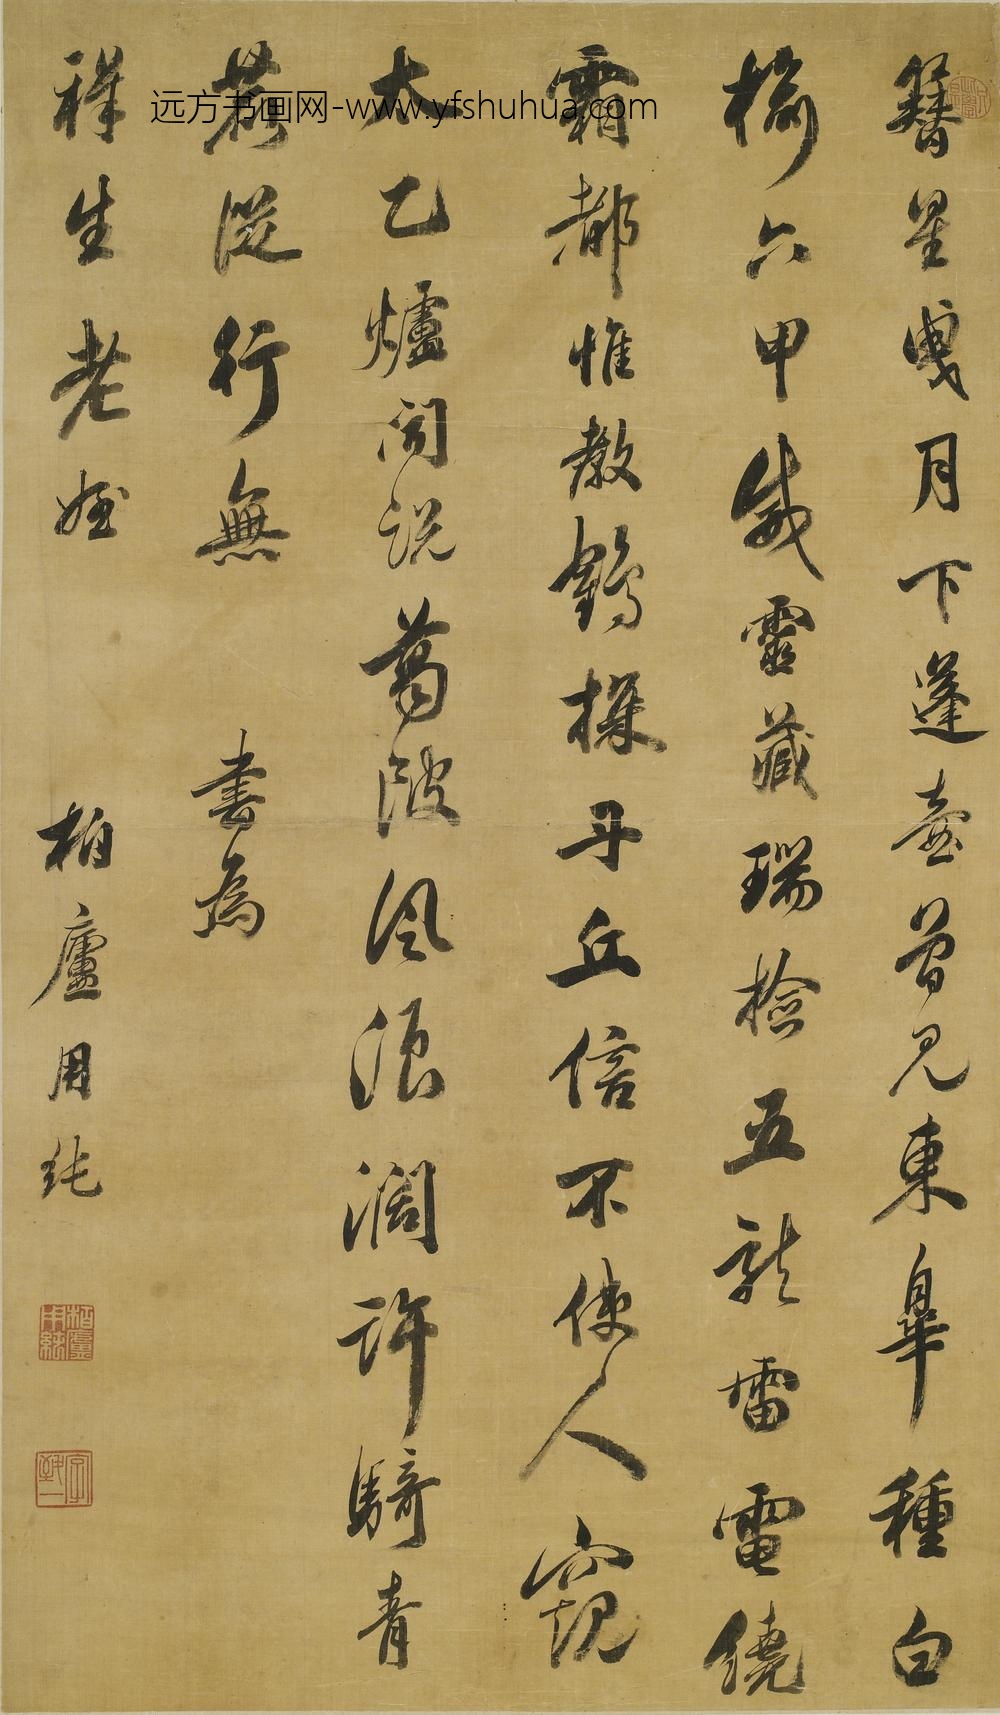 簪星曳月下蓬壺曾見東皋種白
榆六甲威靈藏瑞檢五龍雷電繞
霜都惟教鶴探丹丘信不使人窺
太乙爐聞說葛陂風浪濶許騎青
鹿從行無 書為
生老姪 柏廬用純
柏廬用純
字致一
远方书画网-www.yfshuhua.com